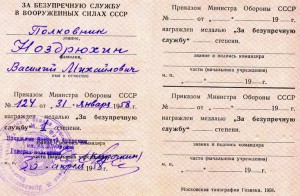 ЗА БЕЗУПРЕЧНУЮ СЛУЖБУ
В ВООРУЖЕННЫХ СИЛАХ СССР
Полковник
звание,
Ноздрюхин
фамилия,
Василий Михайлович
имя и отчество
Приказом Министра Обороны СССР
№ 124 от „31“ января 1958 г.
награжден медалью „За безупречную
службу“ 1 степени.
20 апреля
Приказом Министра Обороны СССР
№ от „ “ 19 г.
награжден медалью „За безупречную
службу“ степени.
звание и подпись командира
М. П. части (начальника учреждения)
Приказом Министра Обороны СССР
№ от „ “ 19 г.
награжден медалью „За безупречную
службу“ степени.
звание и подпись командира
М. П. части (начальника учреждения)
Московская типография Гознака. 1958.